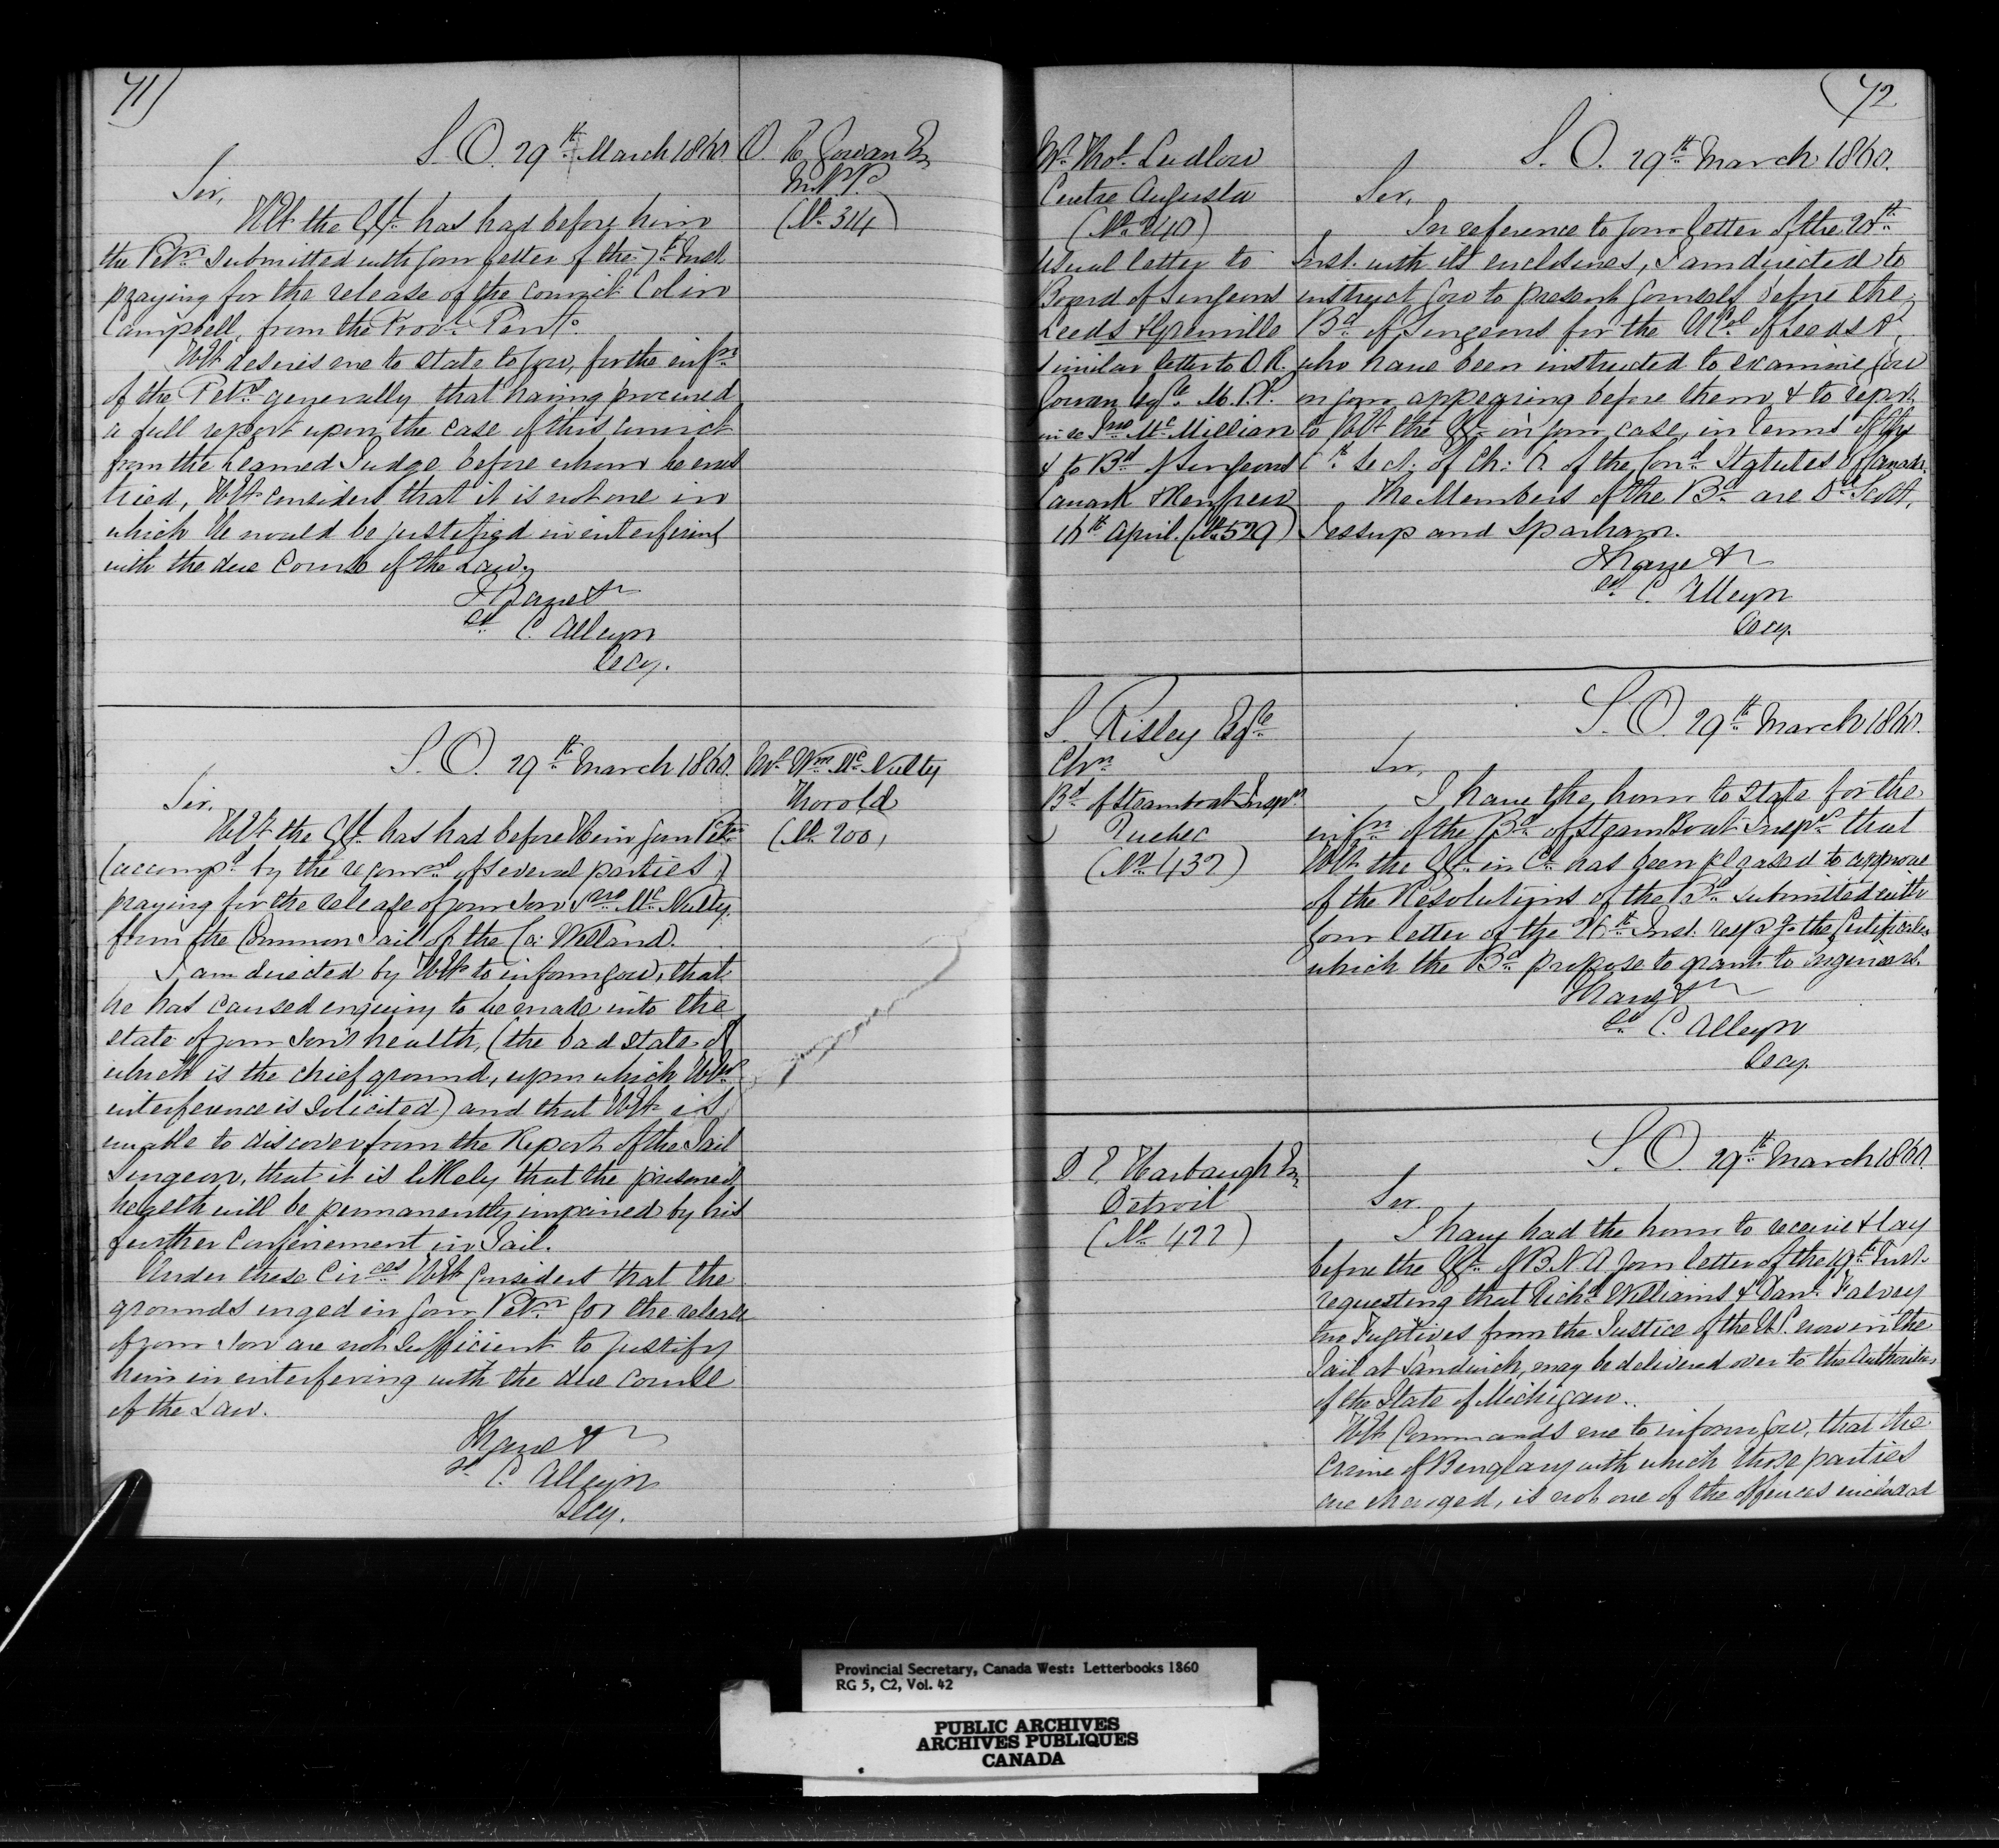 71)
S. O. 29th March 1860
O. R. Gowan Esq
M.P.P.
(No 314)
Sir,
HE the GG. has had before him
the Petn submitted with your letter of the 7th Inst
praying for the release of the convict Colin
Campbell, from the Provl Penty.
HE desires me to state to you, for the infn
of the Petrs generally that having procured
a full report upon the case of this convict
from the Learned Judge before whom he was
tried, HE considers that it is not one in
which He would be justified in interfering
with the due Course of the Law.
I have &c
sd C. Alleyn
Secy.
S. O. 29th March 1860.
Mr Wm McNulty
Thorold
(No 200)
Sir,
HE the GG. has had before Him your Petn
(accompd by the recomn of several parties)
praying for the release of your Son Jno McNulty
from the Common Jail of the Co: Welland.
I am directed by HE to inform you, that
he has caused enquiry to be made into the
state of your Son's health, (the bad state of
which is the chief ground, upon which HEs
interference is Solicited) and that HE is
unable to discover from the Report of the Jail
Surgeon, that it is likely that the prisoner's
health will be permanently impaired by his
further Confinement in Jail.
Under these Circes HE Considers that the
grounds urged in your Petn for the release
of your Son are not Sufficient to justify
him in interfering with the due course
of the Law.
I have &c
sd C. Alleyn
Secy.
(72
Mr Thos Ludlow
Centre Augusta
(No 240)
Usual letter to
Board of Surgeons
Leeds & Grenville
similar letter to O. R.
Gowan Esqre M.P.P.
in re Jno McMillian
& to Bd of Surgeons
Lanark & Renfrew
16th April. (No 529)
S. O. 29th March 1860.
Sir,
In reference to your letter of the 20th
Inst. with its enclosures, I am directed to
instruct you to present yourself before the
Bd of Surgeons for the UCs of Leeds &c
who have been instructed to examine you
on your appearing before them & to report
to HE the GG in your case, in terms of the
Sect. of Ch: of the Cond Statutes of Canada.
The Members of the Bd are Drs Scott,
Jessup and Sparham.
I have &c
sd C. Alleyn
Secy.
S. Risley Esqre
Chn
Bd of Steamboat Inspn
Quebec
(No 432)
S. O. 29th March 1860.
Sir,
I have the honor to State for the
infn of the Bd of SteamBoat Inspn that
HE the GG. in Cl has been pleased to approve
of the Resolutions of the Bd submitted with
your letter of the 26th Inst. respg the Certificates
which the Bd propose to grant to Engineers.
I have &c
sd C. Alleyn
Secy.
D E Harbaugh Esq
Detroit
(No 422)
S. O. 29th March 1860
Sir.
I have had the honor to receive & lay
before the GG. of B.N.A your letter of the 19th Inst.
requesting that Richd Williams & Danl Falvey
two Fugitives from the Justice of the U.S. now in the
Jail at Sandwich, may be delivered over to the Authorities
of the State of Michigan.
HE Commands me to inform you, that the
Crime of Burglary with which those parties
are charged, is not one of the offences included
Provincial Secretary, Canada West: Letterbooks 1860
RG 5, C2, Vol. 42
PUBLIC ARCHIVES
ARCHIVES PUBLIQUES
CANADA